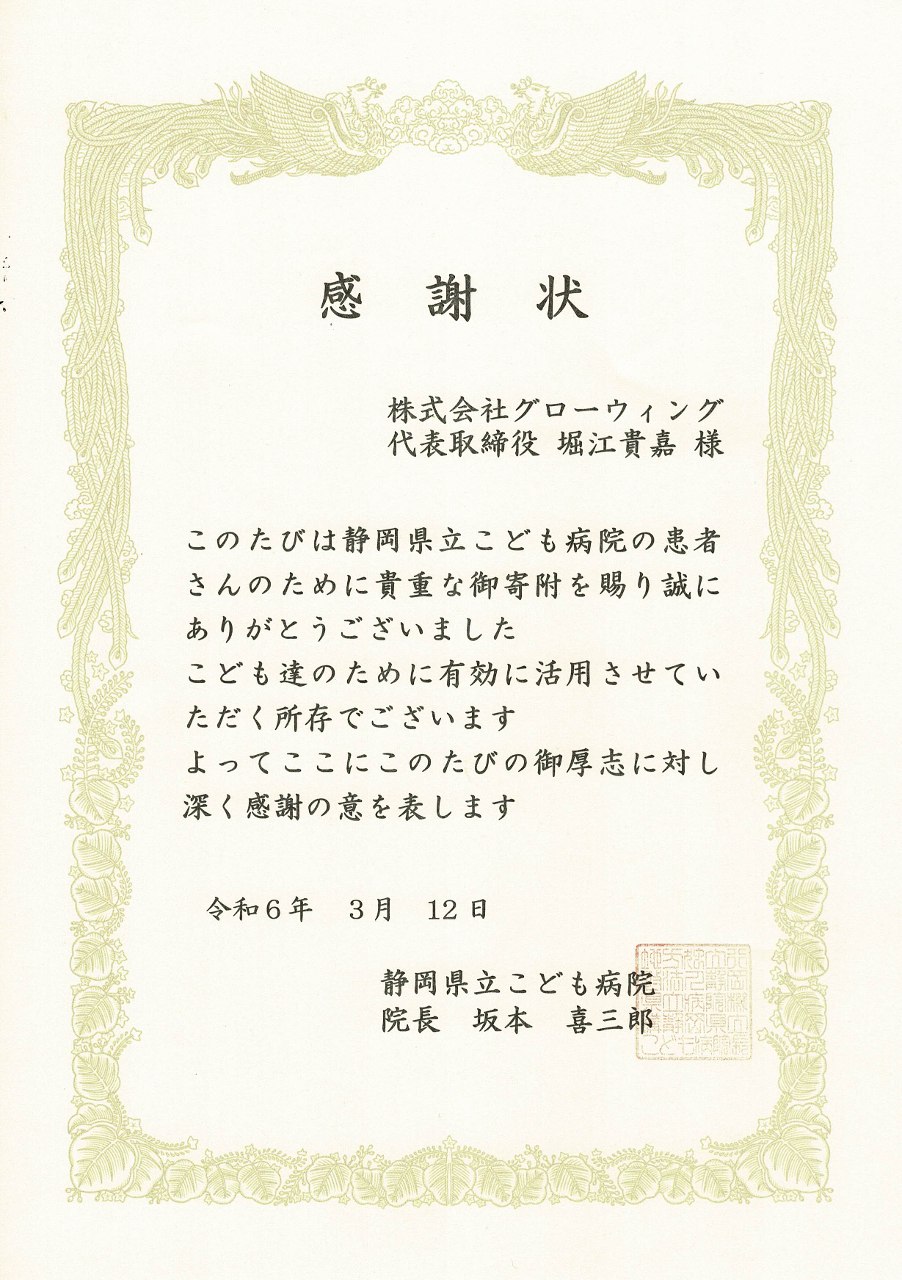 感謝状
株式会社グローウィング
代表取締役 堀江貴嘉 様
このたびは静岡県立こども病院の患者
さんのために貴重な御寄附を賜り誠に
ありがとうございました
こども達のために有効に活用させてい
ただく所存でございます
よってここにこのたびの御厚志に対し
深く感謝の意を表します
令和6年 3月 12日
静岡県立こども病院
院長 坂本 喜三郎